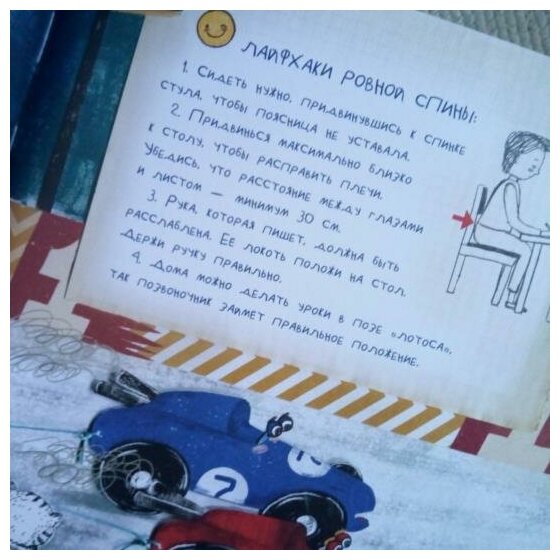 ЛАЙФХАКИ РОВНОЙ СПИНЫ:
1. СИДЕТЬ НУЖНО, ПРИДВИНУВШИСЬ К СПИНКЕ
СТУЛА, ЧТОБЫ ПОЯСНИЦА НЕ УСТАВАЛА.
2. ПРИДВИНЬСЯ МАКСИМАЛЬНО БЛИЗКО
К СТОЛУ, ЧТОБЫ РАСПРАВИТЬ ПЛЕЧИ.
УБЕДИСЬ, ЧТО РАССТОЯНИЕ МЕЖДУ ГЛАЗАМИ
И ЛИСТОМ — МИНИМУМ 30 СМ.
3. РУКА, КОТОРАЯ ПИШЕТ, ДОЛЖНА БЫТЬ
РАССЛАБЛЕНА. ЕЕ ЛОКОТЬ ПОЛОЖИ НА СТОЛ.
ДЕРЖИ РУЧКУ ПРАВИЛЬНО.
4. ДОМА МОЖНО ДЕЛАТЬ УРОКИ В ПОЗЕ «ЛОТОСА»,
ТАК ПОЗВОНОЧНИК ЗАЙМЕТ ПРАВИЛЬНОЕ ПОЛОЖЕНИЕ.
7